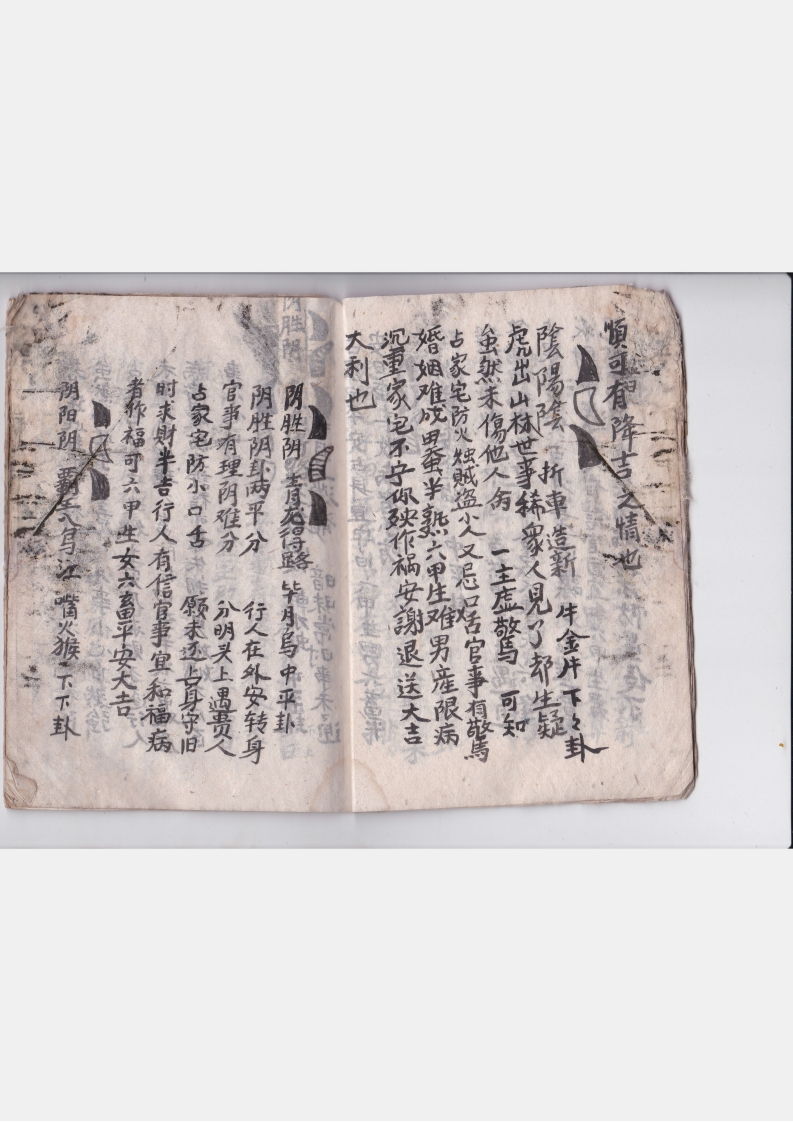 順可有降吉之情也
陰陽陰 折車造新 牛金牛 下々卦
虎出山林世事稀 衆人見了却生疑
虽然未傷他人命 一主虚驚 可知
占家宅防火烛賊盗小人又忌口舌官事有驚
婚姻难成田蚕半熟六甲生难男産限病
沉重家宅不安 殃作禍安謝退送大吉
大利也
阴胜阴 青龙得路 毕月乌 中平卦
阴胜阴卦两平分 行人在外安转身
官事有理阴难分 分明头上遇贵人
占家宅防小口舌 願未还占身守旧
时求財半吉行人有信官事宜和福病
者作福可六甲生女六畜平安大吉
阴阳阴 霸王入乌江 嘴火猴 下下卦